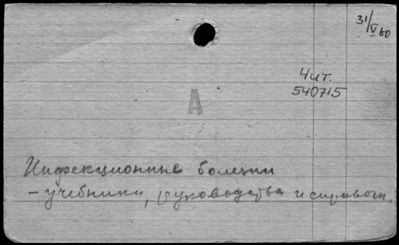 31/V 60
Чит.
540715
А
Инфекционные болезни
- учебники, руководства и справочн.